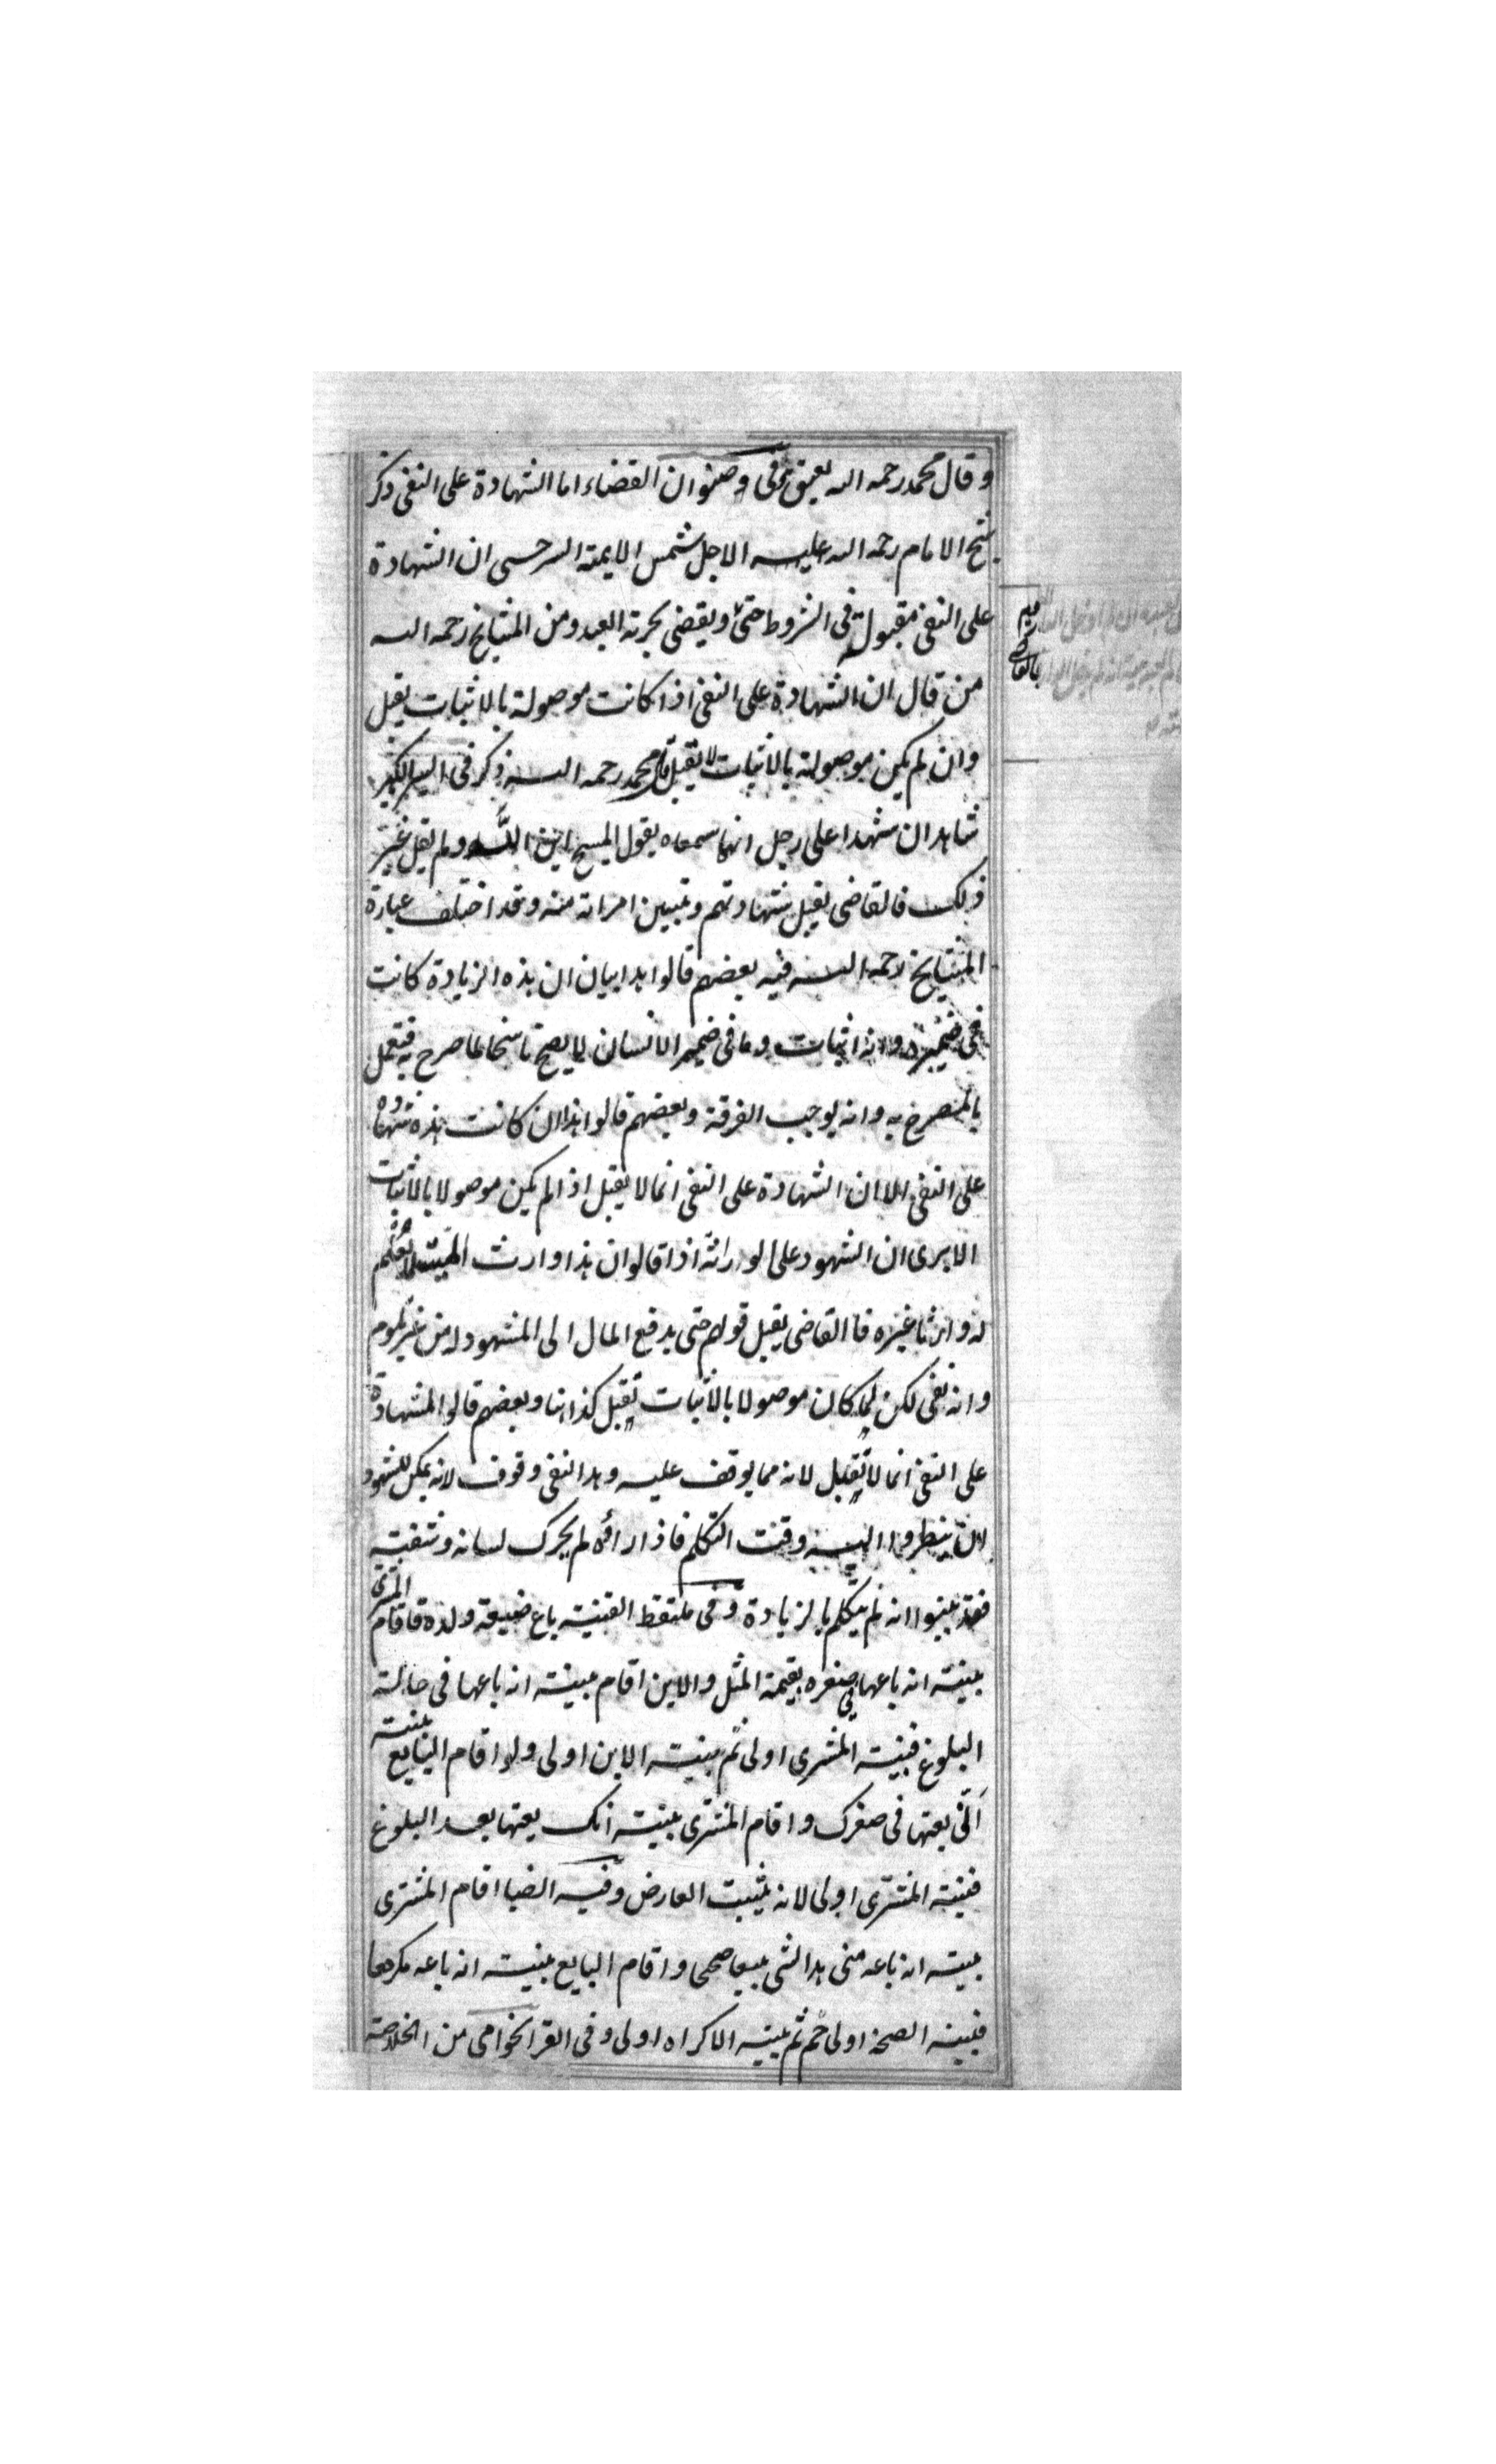 وقال محمد رحمه الله يعتق في وصنوان القضاء اما الشهادة على النفى ذكر
شيخ الامام رحمه الله عليه الاجل شمس الايمة السرحسى ان الشهادة
على النفى مقبولة فى الشروط حتى ويقضى بحرته العبد ومن المشايخ رحمه الله
من قال ان الشهادة على النفى اذا كانت موصولة بالاثبات يقبل
وان لم يكن موصولة بالاثبات لا تقبل قال محمد رحمه الله ذكر فى السير الكبير
شاهدان شهدا على رجل انهما سمعاه يقول المسيح ابن الله ولم يقل غير
ذلك فالقاضى يقبل شهادتهم وتبين امراته منه وقد اختلف عبارة
المشايخ رحمه الله فيه بعضهم قالوا هدا بيان ان هذه الزيادة كانت
فى ضميره وانه اثبات وما فى ضمير الانسان لا يصح ناسخا لما صرح به فيعمل
بالمصرح به وانه يوجب الفرقة وبعضهم قالوا هذا ان كانت هذه شهادة
على النفى الا ان الشهادة على النفى انما لا يقبل اذا لم يكن موصولا بالاثبات
الا يرى ان الشهود على الوراثة اذا قالوا ان هذا وارث الميت لا نعلم
له وارثا غيره فا القاضى يقبل قولهم حتى يدفع المال الى المشهود له من غير تلوم
وانه نفى لكن لما كان موصولا بالاثبات تقبل كذا هنا وبعضهم قالوا الشهادة
على النفى انما لا تقبل لانه مما يوقف عليه وهدا النفى وقوف لانه يمكن للشهود
لان ينطروا اليه وقت التكلم فاذا راؤه لم يحرك لسانه وشفتيه
فقد بينوا انه لم يتكلم بالزيادة وفى ملتقط القنية باع ضيعة ولده فاقام المشترى
بينة انه باعها فى صغره بقيمة المثل والابن اقام بينة انه باعها فى حالة
البلوغ فبينة المشترى اولى ثم بينة الابن اولى ولو اقام البايع بينة
انى بعتها فى صغرك واقام المشترى بينة انك بعتها بعد البلوغ
فبينة المشترى اولى لانه يثبت العارض وفيه ايضا اقام المشترى
بينة انه باعه منى هدا الشى بيعا صحى واقام البايع بينة انه باعه مكرها
فبينة الصحة اولى ثم بينة الاكراه اولى وفى القراخوامى من الخلاصة